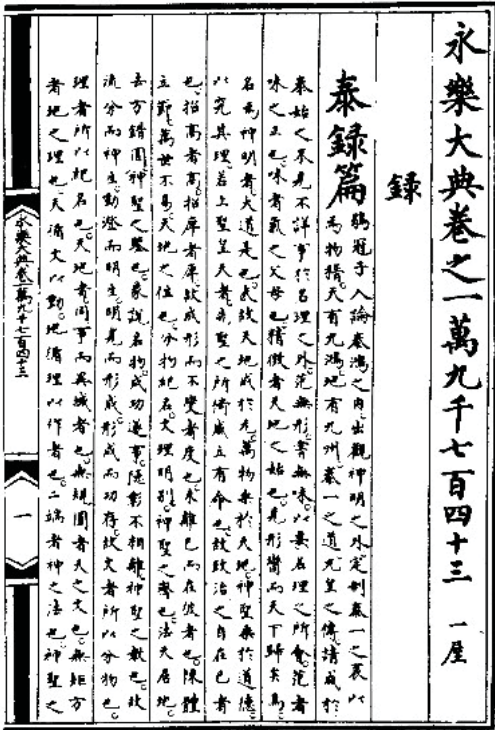 永樂大典卷之一萬九千七百四十三　一屋
録
泰録篇
鶡冠子入論泰鴻之内出觀神明之外定制泰一之衷以
為物稽天有九鴻地有九州泰一之道九皇之傅請成於
泰始之末見不詳事於名理之外范無形嘗無味以要名理之所會范者
味之正也味者氣之父母也精微者天地之始也見形臠而天下歸美焉
名為神明者大道是也故天地成於元萬物乘於天地神聖乘於道德
以究其理若上聖皇天者先聖之所倚威立有命也故致治之自在己者
也招高者高招庳者庳故成形而不變者度也未離己而在彼者也陳體
立節萬世不易天地之位也分物紀名文理明別神聖之齊也法天居地
去方錯圓神聖之鑒也象說名物成功遂事隱彰不相離神聖之教也故
流分而神生動登而明生明見而形成形成而功存故文者所以分物也
理者所以紀名也天地者同事而異域者也無規圓者天之文也無矩方
者地之理也天循文以動地循理以作者也二端者神之法也神聖之
永樂大典卷一萬九千七百四十三
一